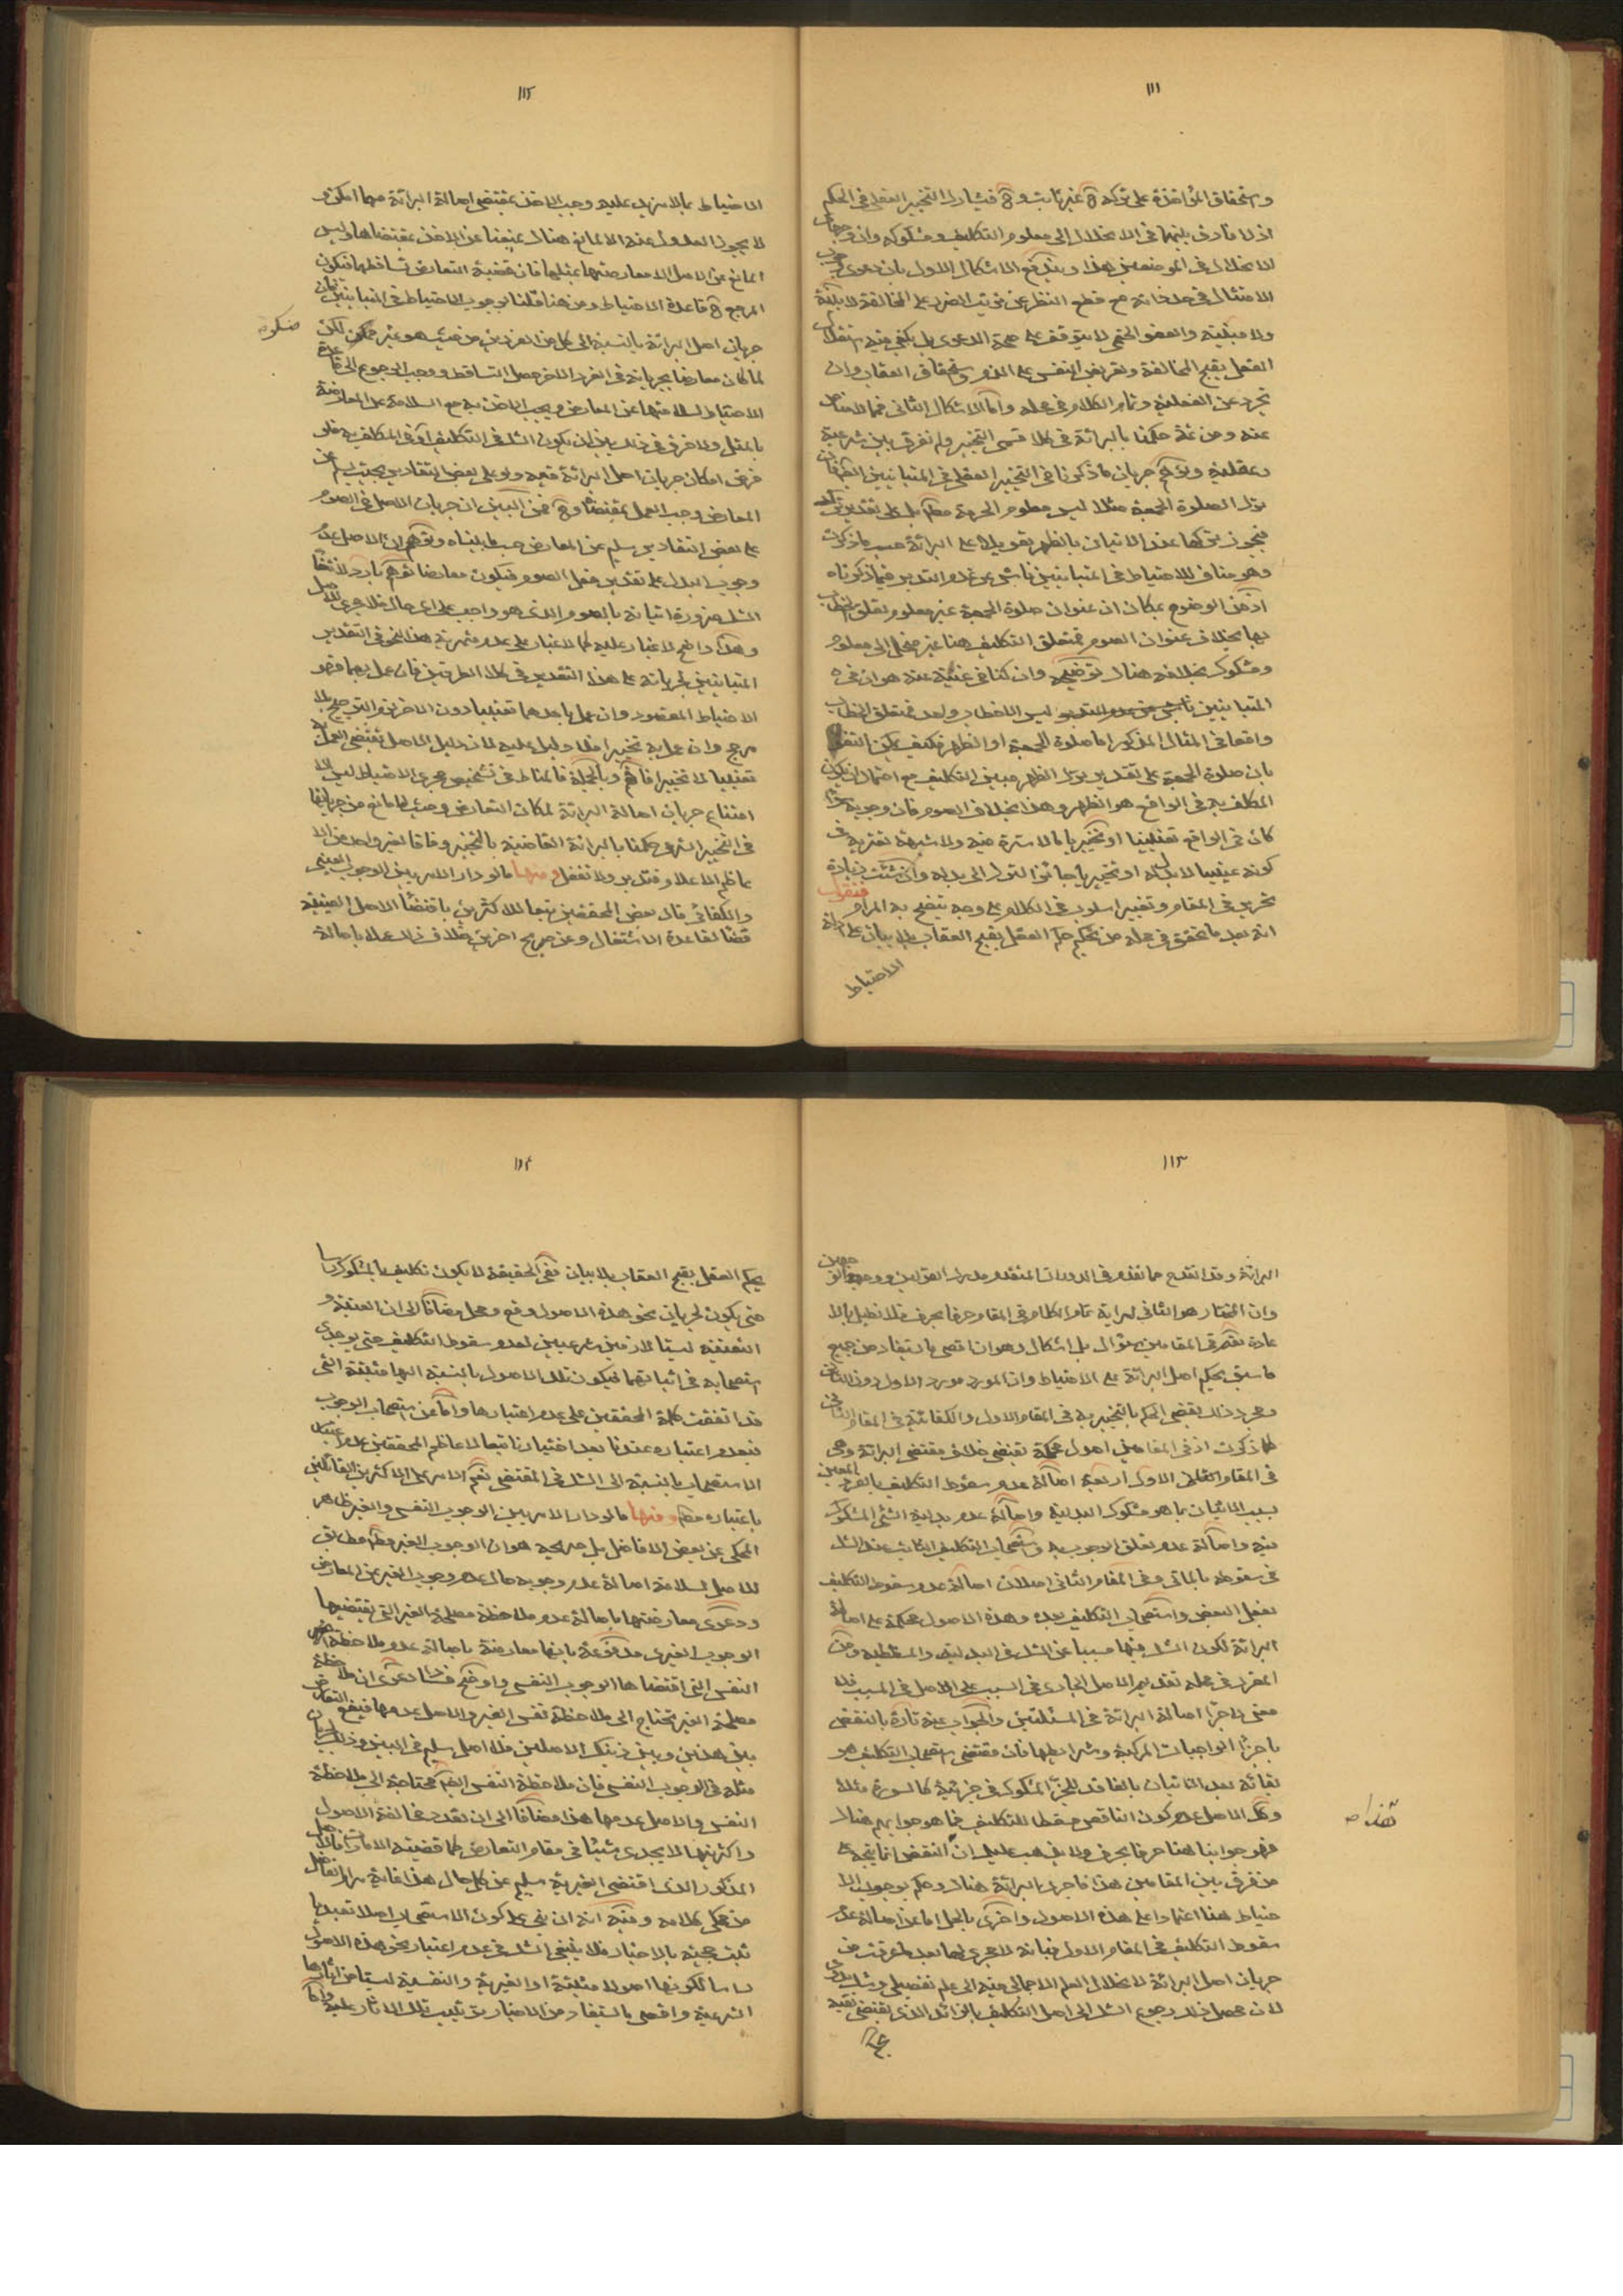 ١١١
واستحقاق المؤاخذة على تركه ح غير ثابت وح فيشارك التخيير العقلى فى الحكم
اذ لا فارق بينهما فى الانحلال الى معلوم التكليف ومشكوكه وان
الانحلال فى الموضعين هذا ويندفع الاشكال الاول بان دعوى
الامتثال فى حد ذاته مع قطع النظر عن ترتب الضرر على المخالفة
والعفو الحتمى لا يتوقف على صحة الدعوى بل يكفى فيه
العقل بقبح المخالفة وتعريض النفس على الذم واستحقاق العقاب وان
تجرد عن الفعلية وتمام الكلام فى محله واما الاشكال الثانى فمما لا مناص
عنه ومن ثمة حكمنا بالبرائة فى كلا قسمى التخيير ولم نفرق بين شرعية
وعقلية وتوهم جريان ما ذكرنا فى التخيير العقلى فى المتباينين
ترك الصلوة الجمعة مثلا ليس معلوم الحرمة مطلقا بل على تقدير
فيجوز تركها عند الاتيان بالظهر تعويلا على البرائة حسب ما ذكرت
وهو مناف للاحتياط فى المتباينين ناش عن عدم التدبر فيما ذكرناه
اذ من الوضوح بمكان ان عنوان صلوة الجمعة غير معلوم تعلق الخطاب
بها بخلاف عنوان الصوم فمتعلق التكليف هنا غير منحل الى معلوم
ومشكوك بخلافه هناك توضيحه وان كنا فى غنية عنه هو ان فى
المتباينين ليس الا خطاب واحد فمتعلق الخطاب
واقعا فى المثال المذكور اما صلوة الجمعة او الظهر فكيف يمكن
بان صلوة الجمعة على تقدير ترك الظهر مبين التكليف مع احتمال ان يكون
المكلف به فى الواقع هو الظهر وهذا بخلاف الصوم فان وجوبه سواء
كان فى الواقع تعيينيا او تخييريا مما لا سترة فيه ولا شبهة تعتريه فى
كونه عينيا لا بدل له او تخييريا جائز الترك الى بدله وان شئت زيادة
تحرير فى المقام وتغيير اسلوب فى الكلام على وجه يتضح به المرام فنقول
انه بعد ما تحقق فى محله من تحكيم حكم العقل بقبح العقاب بلا بيان على ادلة
الاحتياط
١١٢
الاحتياط بما لا مزيد عليه وجب الاخذ بمقتضى اصالة البرائة مهما امكن و
لا يجوز العدول عنه الا لمانع هناك يمنعنا عن الاخذ بمقتضاها وليس
المانع عن الاصل الا معارضتها بمثلها فان قضية التعارض تساقطهما فيكون
المرجع ح قاعدة الاحتياط ومن هنا قلنا بوجوب الاحتياط فى المتباينين فان
جريان اصل البرائة بالنسبة الى كل من الفردين من حيث هو غير لكن
لما كان معارضا بجريانه فى الفرد الاخر حصل التساقط ووجب الرجوع الى قاعدة
الاحتياط لسلامتها عن المعارض ويجب الاخذ به مع السلامة عن المعارضة
بالمثل ولا فرق فى ذلك بين ان يكون الشك فى التكليف او فى المكلف به فلو
فرض امكان جريان اصل البرائة فيه ولو على بعض التقادير بحيث يسلم عن
المعارض وجب العمل بمقتضاه وح فمن البين ان جريان الاصل فى الصوم
على بعض التقادير سليم عن المعارض حسب ما بيناه وتوهم ان الاصل عدم
وجوب البدل على تقدير فعل الصوم فيكون معارضا توهم بارد لانتفاء
الشك ضرورة اتيانه بالصوم الذى هو واجب على اى حال فلا مجرى للاصل
وهذا واضح لا غبار عليه كما لا غبار على عدم ثمرية هذا النحو فى التقدير
المتباينين لجريانه على هذا التقدير فى كلا الطرفين فان عمل بهما فهو
الاحتياط المقصود وان عمل باحدهما تعيينا دون الاخر فهو الترجيح بلا
مرجح وان عمل به تخييرا فلا دليل عليه لان دليل الاصل يقتضى العمل به
تعيينا لا تخييرا فافهم وبالجملة فالمناط فى تشخيص مجرى الاحتياط ليس الا
امتناع جريان اصالة البرائة لمكان التعارض وحيث لا مانع من جريانها
فى التخيير الشرعى حكمنا بالبرائة القاضية بالتخيير وفاقا لغير واحد من
اعاظم الاعلام فتدبر ولا تغفل ومنها ما لو دار الامر بين الوجوب العينى
والكفائى قال بعض المحققين تبعا للاكثرين باقتضاء الاصل العينية
قضاء لقاعدة الاشتغال وعن صريح اخرين خلاف ذلك عملا باصالة
١١٣
البرائة وقد انقدح مما تقدم فى الدوران المتقدم مدرك القولين ووجههما
وان المختار هو الثانى لسراية تمام الكلام فى المقام حرفا بحرف فلا نطيل بالا
عادة نعم فى المقامين سؤال بل اشكال وهو ان اقصى ما يستفاد من جميع
ما سبق تحكيم اصل البرائة على الاحتياط وان المورد مورد الاول دون الثانى
ومجرد ذلك لا يقضى الحكم بالتخييرية فى المقام الاول والكفائية فى المقام الثانى
كما ذكرت اذ فى المقامين اصول محكمة تقتضى خلاف مقتضى البرائة وهى
فى المقام الاول اربعة اصالة عدم سقوط التكليف بالفرد المعين
بسبب الاتيان بما هو مشكوك البدلية واصالة عدم بدلية الشئ المشكوك
فيه واصالة عدم تعلق الوجوب به واستصحاب التكليف الثابت عند الشك
فى سقوطه بالماتى وفى المقام الثانى اصلان اصالة عدم سقوط التكليف
بفعل البعض واستصحاب التكليف بعده وهذه الاصول محكمة على اصالة
البرائة لكون الشك فيها مسببا عن الشك فى البدلية والمسقطية ومن
المقرر فى محله تقديم الاصل الجارى فى السبب على الاصل فى المسبب فلا
معنى لاجراء اصالة البرائة فى المسئلتين والجواب عنه تارة بالنقض
باجزاء الواجبات المركبة وشرائطها فان مقتضى استصحاب التكليف هو
بقائه بعد الاتيان بالفاقد للجزء المشكوك فى جزئيته كالسورة مثلا
وكذا الاصل عدم كون الناقص مسقطا للتكليف فما هو جوابهم هناك
فهو جوابنا هنا حرفا بحرف ولا يذهب عليك ان النقض انما يتجه على
من فرق بين المقامين هذا فاجرى البرائة هناك وحكم بوجوب الا
حتياط هنا اعتمادا على هذه الاصول واخرى بالحل اما عن اصالة عدم
سقوط التكليف فى المقام الاول فبانه لا مجرى لها بعد ما عرفت من
جريان اصل البرائة لانحلال العلم الاجمالى فيه الى علم تفصيلى وشك بدوى
لان محصل ذلك رجوع الشك الى اصل التكليف بالزائد الذى يقتضى نفيه
١١٤
حكم العقل بقبح العقاب بلا بيان ففى الحقيقة لا يكون تكليف بالمشكوك راسا
حتى يكون لجريان نحو هذه الاصول وقع ومحل مضافا الى ان العينية و
التعيينية ليستا لازمين شرعيين لعدم سقوط التكليف حتى يوجدى
استصحابه فى اثباتهما فيكون تلك الاصول بالنسبة اليها مثبتة التى
قد اتفقت كلمة المحققين على عدم اعتبارها واما عن استصحاب الوجوب
فبعدم اعتباره عندنا بعد اختيارنا تبعا لاعاظم المحققين عدم اعتبار
الاستصحاب بالنسبة الى الشك فى المقتضى نعم الامر على الاكثرين القائلين
باعتباره مطلقا ومنها ما لو دار الامر بين الوجوب النفسى والغيرى ظاهر
المحكى عن بعض الافاضل بل صريحه هو ان الوجوب الغيرى مطابق
للاصل لسلامة اصالة عدم وجوبه حال عدم وجوب الغير عن المعارض
ودعوى معارضتها باصالة عدم ملاحظة مصلحة الغير التى يقتضيها
الوجوب الغيرى مدفوعة بانها معارضة باصالة عدم ملاحظة
النفس التى اقتضاها الوجوب النفسى واوضح فسادا دعوى ان ملاحظة
مصلحة الغير تحتاج الى ملاحظة نفس الغير والاصل عدمها فيقع التعارض
بين هذين وبين ذينك الاصلين فلا اصل سليم فى البين وذلك
مثله فى الوجوب النفسى فان ملاحظة النفس ايضا محتاجة الى ملاحظة
النفس والاصل عدمها هذا مضافا الى ان تعدد مخالفة الاصول
واكثريتها لا يجدى شيئا فى مقام التعارض كما قضية الامارات فالاصل
المذكور الذى اقتضى الغيرية سليم عن كل حال هذا غاية مرام الفاضل
من محكى كلامه وفيه انه ان بنى على كون الاستصحاب اصلا تعبديا
ثبت حجيته بالاخبار فلا ينبغى الشك فى عدم اعتبار نحو هذه الاصول
راسا لكونها اصولا مثبتة اذ الغيرية والنفسية ليستا من اثارها
الشرعية واقصى ما يستفاد من الاخبار ترتيب تلك الاثار عليه واما